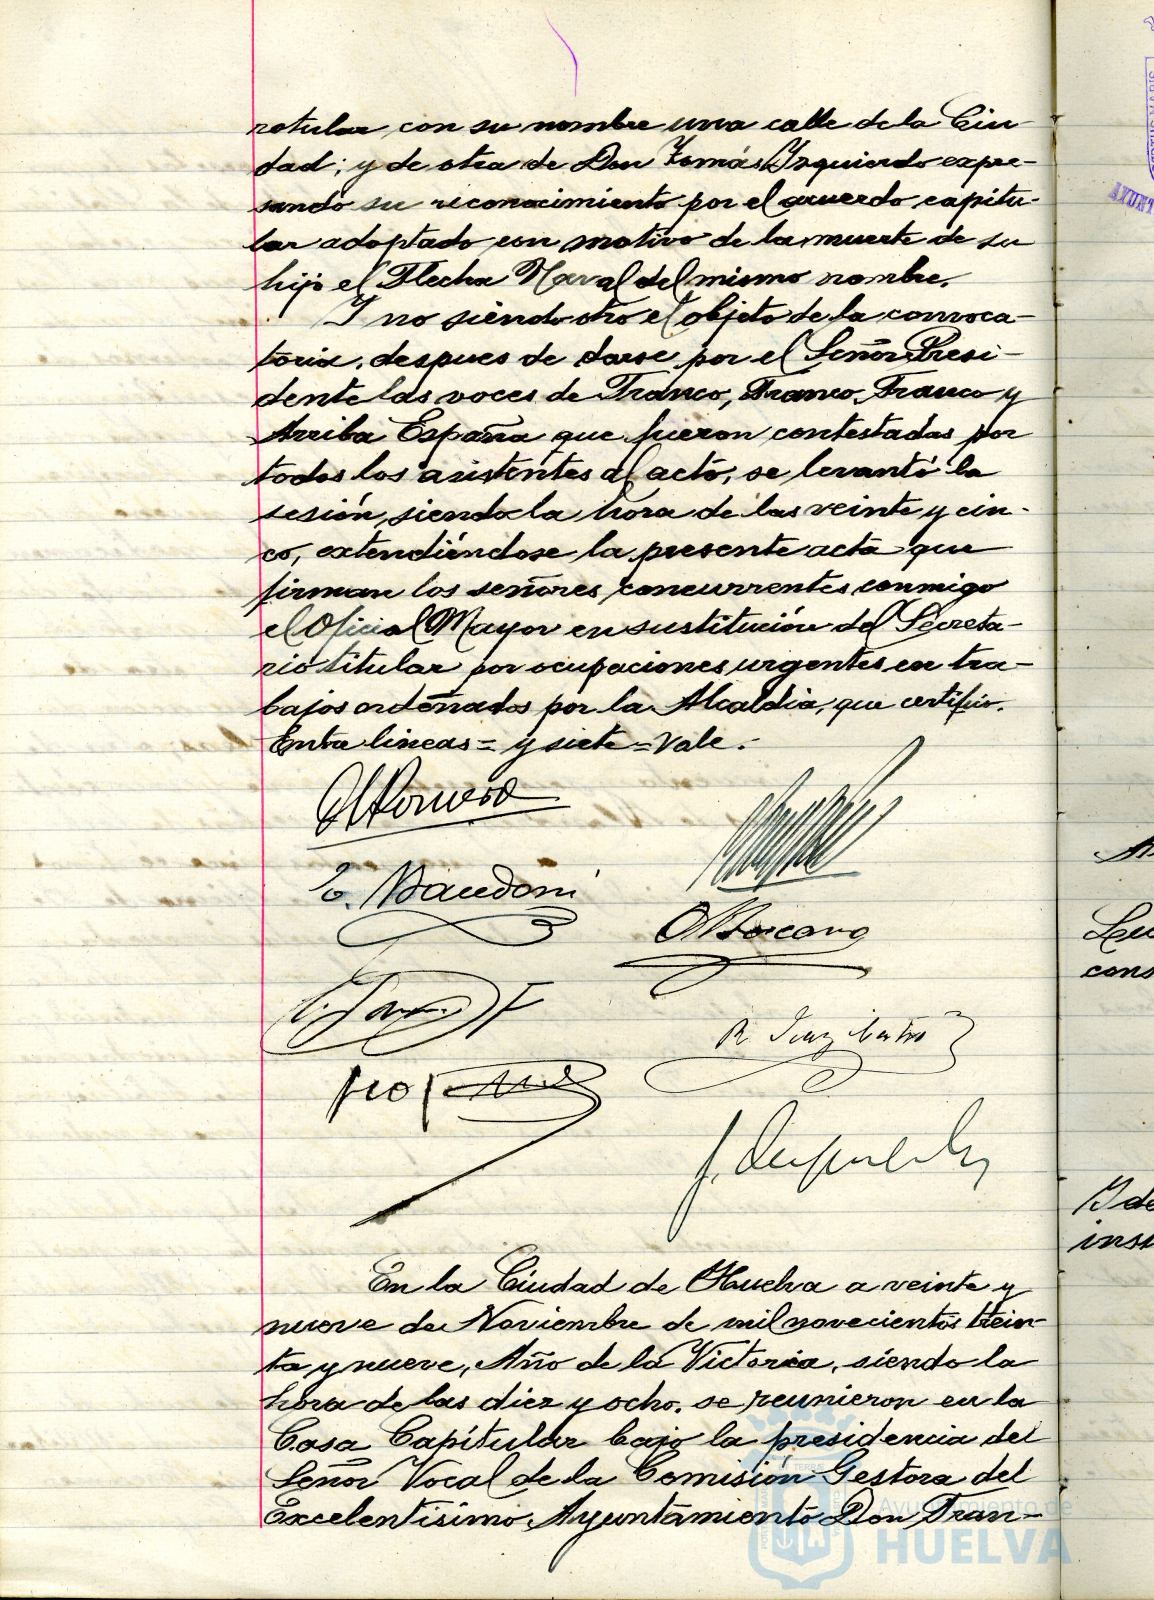 rotular con su nombre una calle de la Ciu-
dad; y de otra de Don Tomás Izquierdo expre-
sando su reconocimiento por el acuerdo capitu-
lar adoptado con motivo de la muerte de su
hijo el Flecha Naval del mismo nombre.
Y no siendo otro el objeto de la convoca-
toria, despues de darse por el Señor Presi-
dente las voces de Franco, Franco, Franco y
Arriba España que fueron contestadas por
todos los asistentes al acto, se levantó la
sesión, siendo la hora de las veinte y cin-
co, extendiéndose la presente acta que
firman los señores concurrentes conmigo
el Oficial Mayor en sustitución del Secreta-
rio titular por ocupaciones urgentes en tra-
bajos ordenados por la Alcaldia, que certifico.
Entre lineas = y siete = Vale.
R.
En la Ciudad de Huelva a veinte y
nueve de Noviembre de mil novecientos trein-
ta y nueve, Año de la Victoria, siendo la
hora de las diez y ocho, se reunieron en la
Casa Capitular bajo la presidencia del
Señor Vocal de la Comisión Gestora del
Excelentisimo Ayuntamiento Don Fran-
Ayuntamiento de
HUELVA
cons